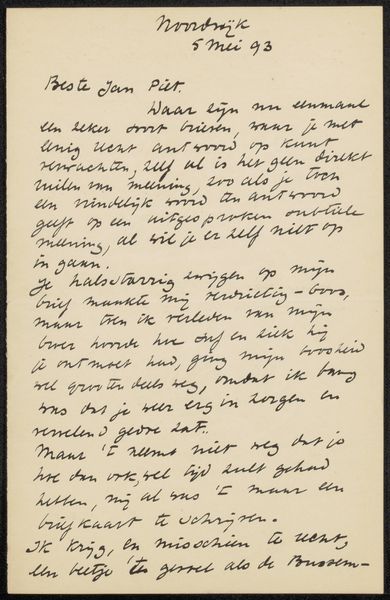 Noordwijk
5 Mei 93
Beste Jan Piet.
Waar zijn nu eenmaal
een zeker soort brieven, waar je met
eenig recht antwoord op kunt
verwachten, zelf al is het geen direkt
ruilen van meening, zoo als je toen
een vriendelijk woord ten antwoord
geeft op een uitgesproken subtiele
meening, al wil je er zelf niet op
in gaan.
Je halsstarrig zwijgen op mijn
brief maakte mij verdrietig - boos,
maar toen ik verleden van mijn
broer hoorde hoe en ziek hij
je ontmoet had, ging mijn boosheid
wel grooten deels weg, omdat ik bang
was dat je weer erg in zorgen en
vervelend gedoe zat.
Maar 't neemt niet weg dat je
hoe dan ook, wel tijd zult gehad
hebben, mij al was 't maar een
briefkaart te schrijven.
Ik krijg, en misschien te recht,
een beetje 't gevoel als de Bussem-